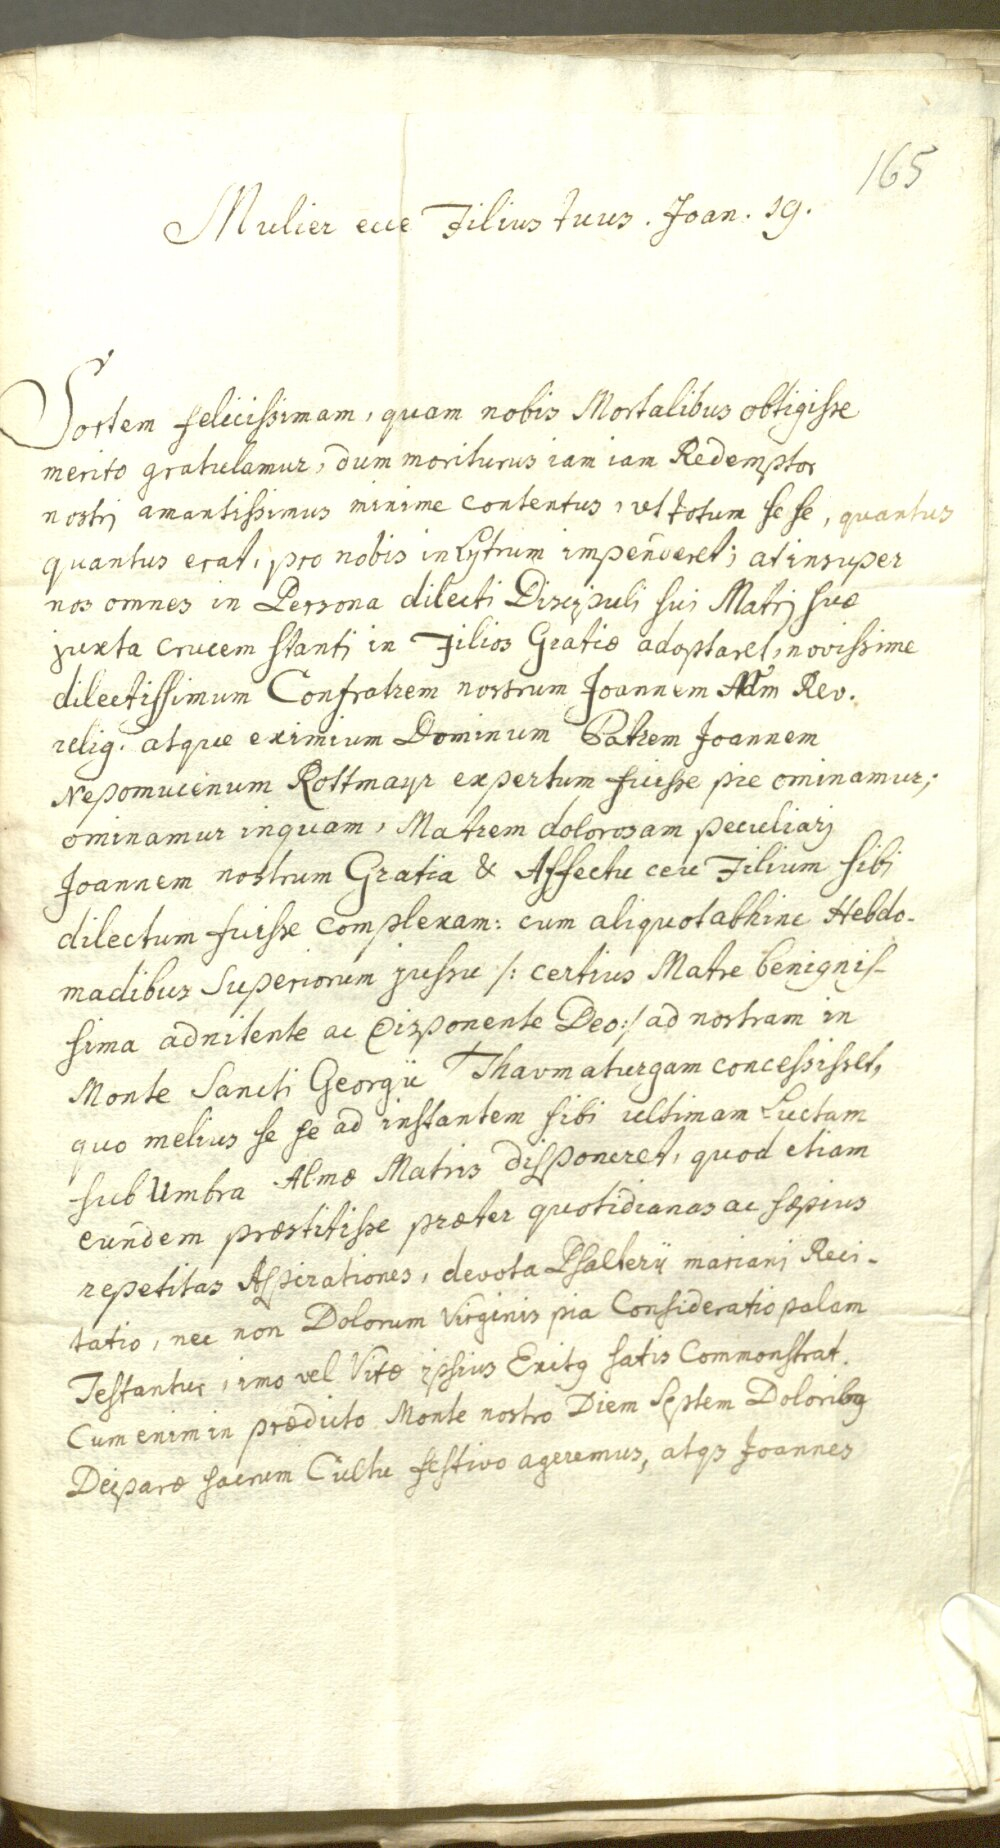 165
Mulier ecce Filius tuus. Joan. 19.
Sortem felicissimam, quam nobis Mortalibus obtigisse
merito gratulamur, dum moriturus iam iam Redemptor
nostrj amantissimus minime contentus, ut totum se se, quantus
quantus erat, pro nobis in Lytrum impenderet; at insuper
nos omnes in Persona dilecti Discipuli sui Matrj suæ
juxta crucem stantj in Filios Gratiæ adoptaret, novissime
dilectissimum Confratrem nostrum Joannem Adm Rev.
relig. atque eximium Dominum Patrem Joannem
Nepomucenum Rottmayr expertum fuisse pie ominamur;
ominamur inquam, Matrem dolorosam peculiarj
Joannem nostrum Gratia & Affectu ceu Filium sibi
dilectum fuisse complexam: cum aliquot abhinc Hebdo-
madibus Superiorum jussu /: certius Matre benignis-
sima adnitente ac disponente Deo :/ ad nostram in
Monte Sancti Georgii Thaumaturgam concessisset,
quo melius se se ad instantem sibi ultimam Luctam
sub Umbra Almæ Matris disponeret, quod etiam
eundem præstitisse præter quotidianas ac sæpius
repetitas Aspirationes, devota Psalterij marianj Reci-
tatio, nec non Dolorum Virginis pia Consideratio palam
Testantur, imo vel Vitæ ipsius Exitq satis Commonstrat.
Cum enim in prædicto Monte nostro Diem Septem Doloribq
Deiparæ sacrum Cultu festivo ageremus, atqs Joannes